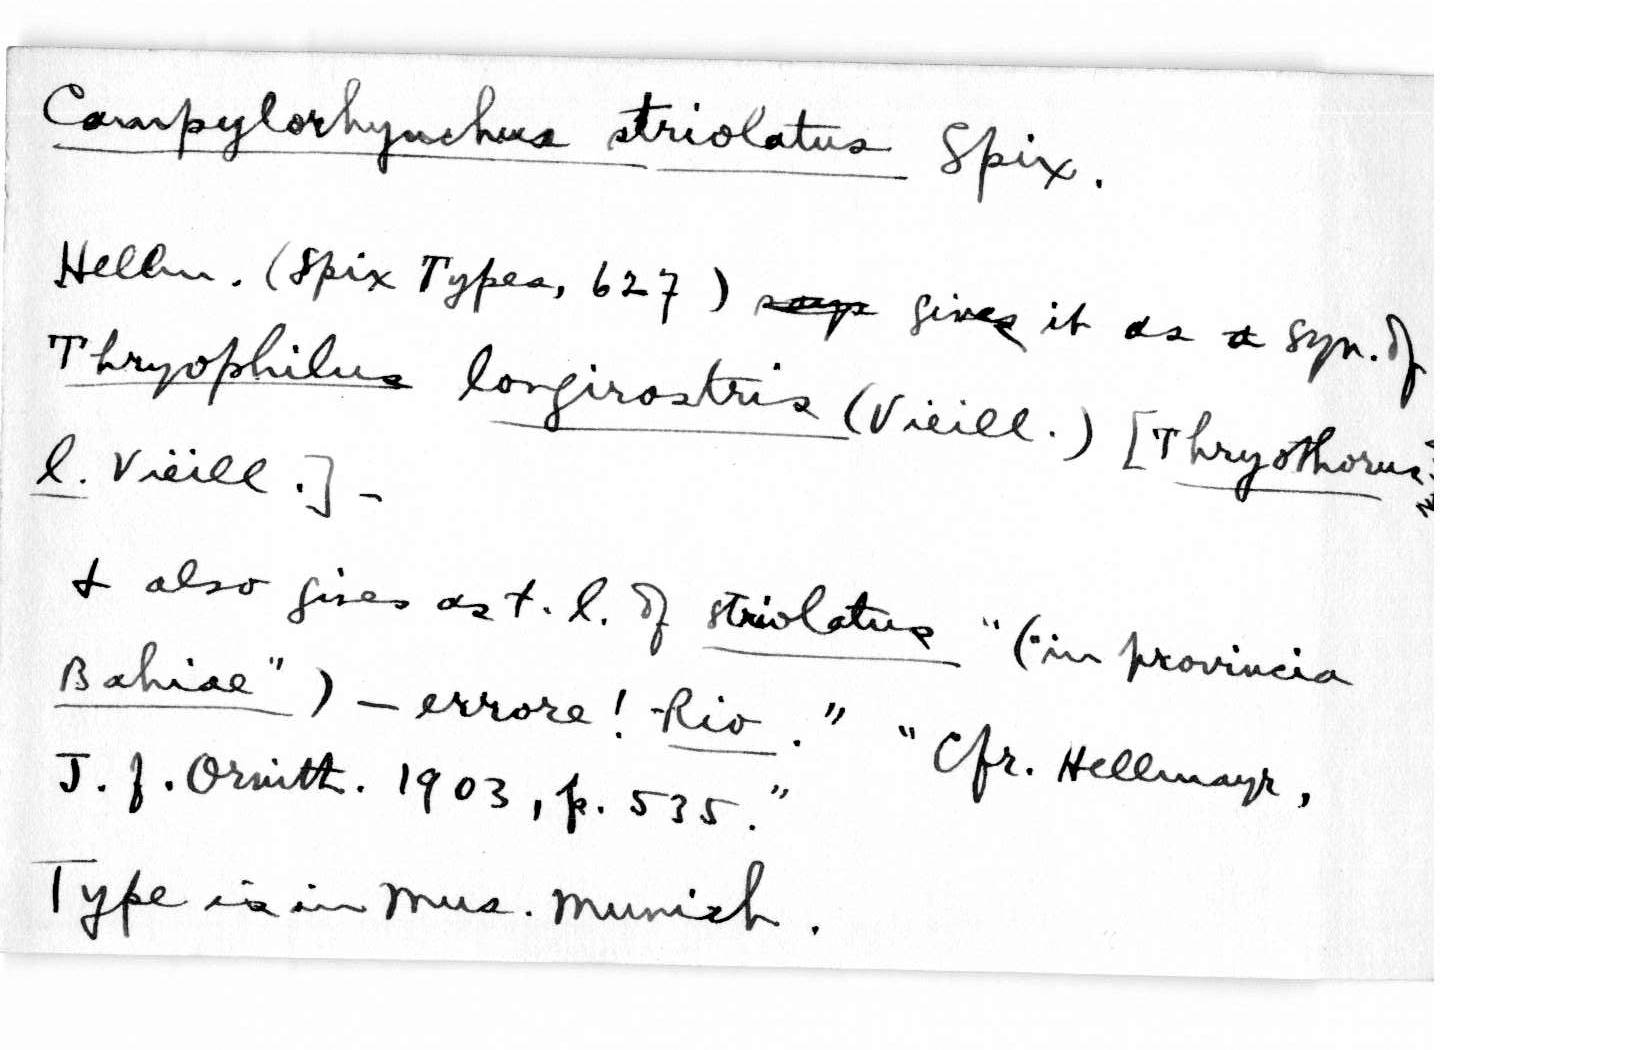 Campylorhynchus striolatus Spix.
Hellm. (Spix Types, 627) says gives it as a syn. of
Thryophilus longirostris (Vieill.) [Thryothorus
l. Vieill.] -
& also gives as t. l. of striolatus "("in provincia
Bahiae") — errore! Rio." "Cfr. Hellmayr,
J. f. Ornith. 1903, p. 535."
Type is in Mus. Munich.